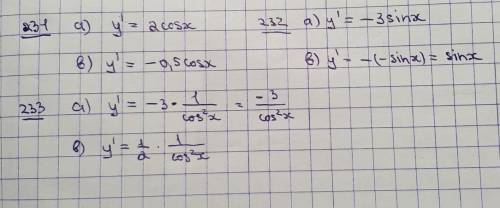 231 а) y' = 2cosx
в) y' = -0,5cosx
232 а) y' = -3sinx
в) y' - -(-sinx) = sinx
233 а) y' = -3 · 1/cos²x = -3/cos²x
в) y' = 1/2 · 1/cos²x